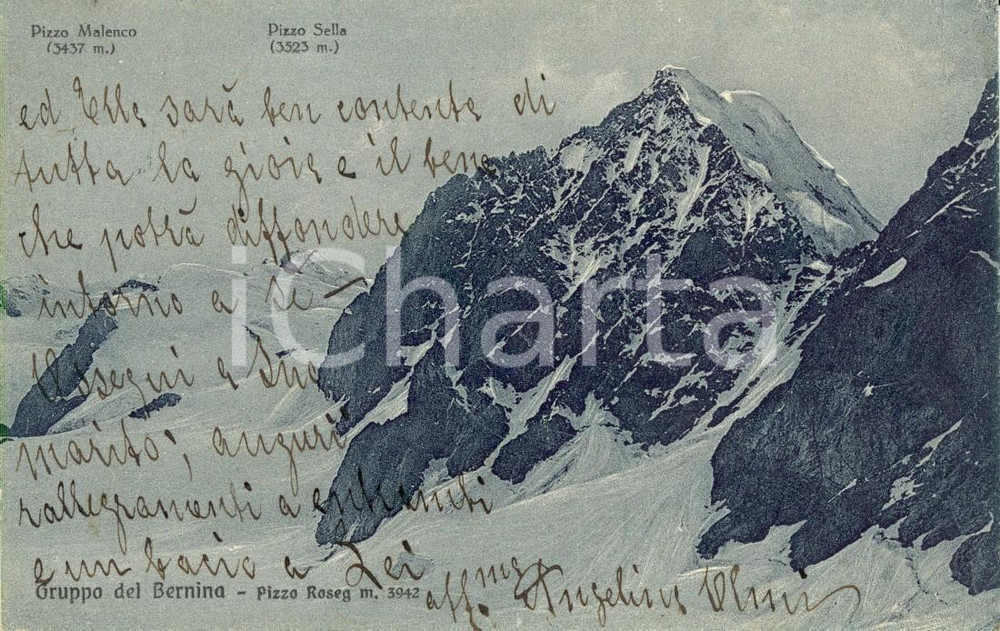 Pizzo Malenco
(3437 m.)
Pizzo Sella
(3523 m.)
ed Ella sarà ben contenta di
tutta la gioia e il bene
che potrà diffondere
intorno a Sè —
Ossequi a Suo
marito; auguri
rallegramenti a entrambi
e un bacio a Lei
aff.ma Angelina
Gruppo del Bernina - Pizzo Roseg m. 3942
iCharta